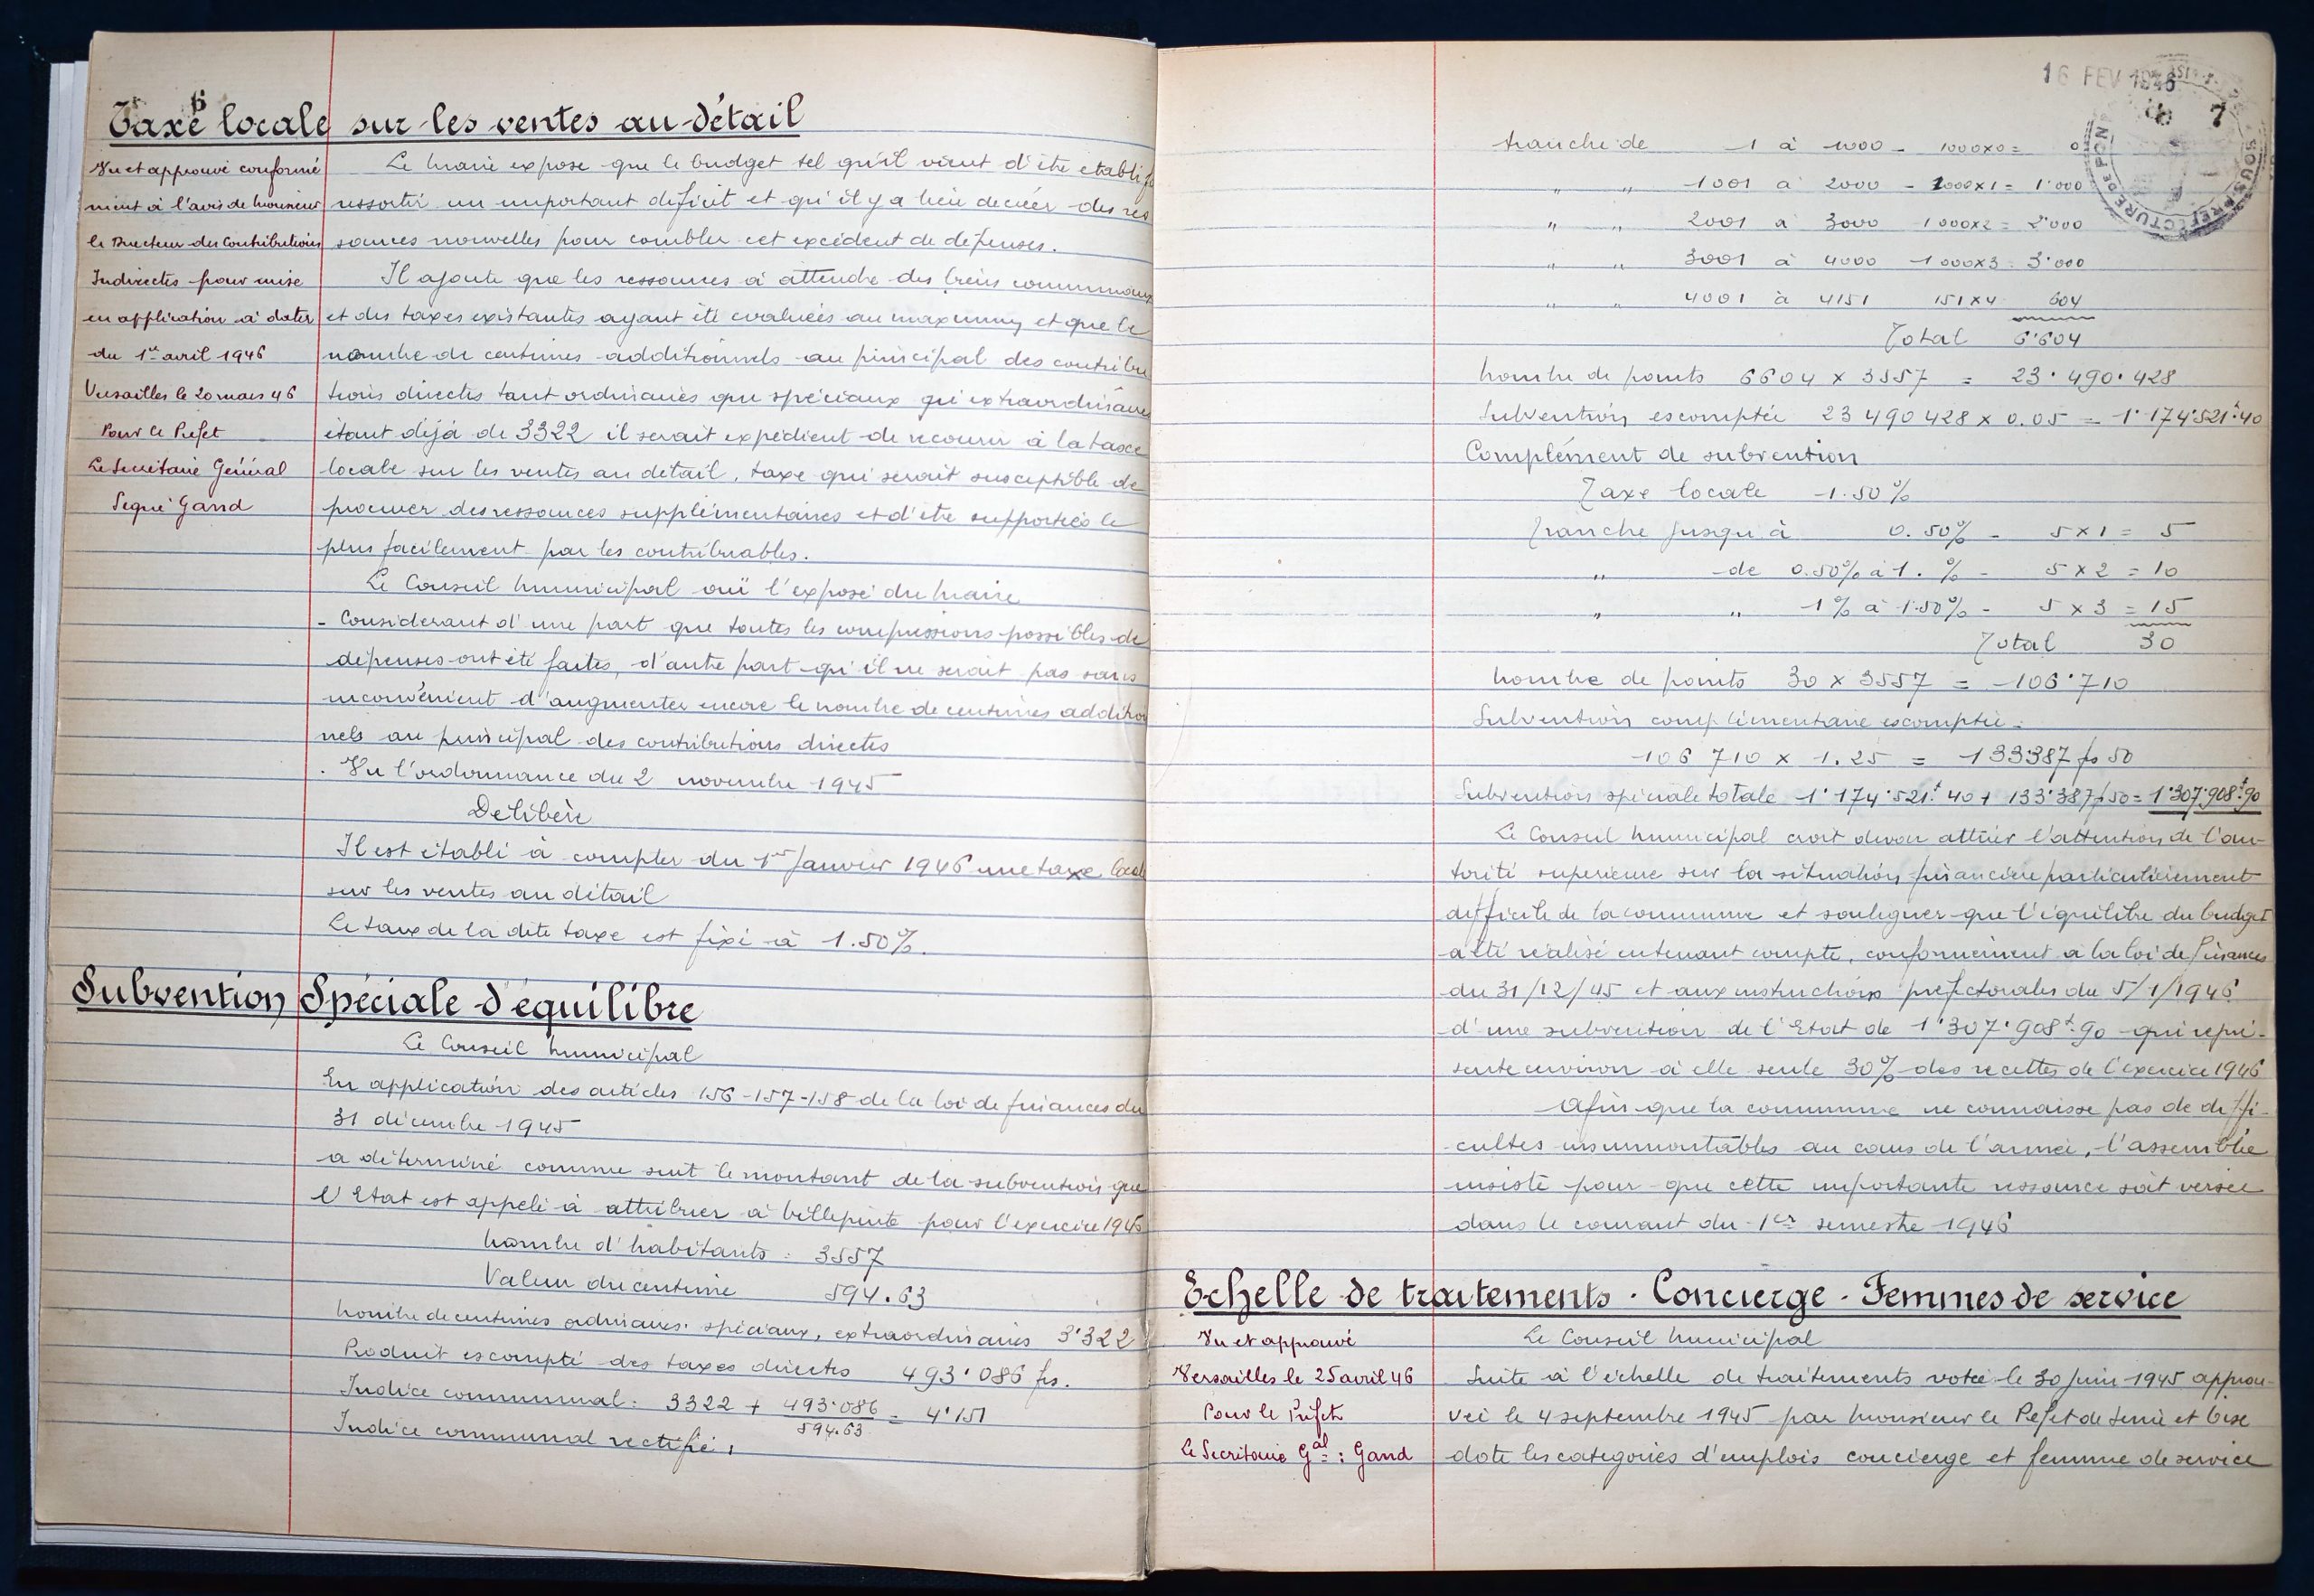 6
Taxe locale sur les ventes au détail
Vu et approuvé conformé
ment à l'avis de Monsieur
le Directeur des Contributions
Indirectes pour mise
en application à dater
du 1er avril 1946
Versailles le 20 mars 46
Pour le Préfet
Le Secrétaire Général
Signé Gand
Le Maire expose que le budget tel qu'il vient d'être établi
ressortir un important déficit et qu'il y a lieu de créer des res
sources nouvelles pour combler cet excédent de dépenses.
Il ajoute que les ressources à attendre des biens communaux
et des taxes existantes ayant été évaluées au maximum et que le
nombre de centimes additionnels au principal des contribu
tions directes tant ordinaires que spéciaux qu'extraordinaires
étant déjà de 3322 il serait expédient de recourir à la taxe
locale sur les ventes au détail, taxe qui serait susceptible de
procurer des ressources supplémentaires et d'être supportées le
plus facilement par les contribuables.
Le Conseil Municipal ouï l'exposé du Maire
- Considérant d'une part que toutes les compressions possibles de
dépenses ont été faites, d'autre part qu'il ne serait pas sans
inconvénient d'augmenter encore le nombre de centimes addition
nels au principal des contributions directes
. Vu l'ordonnance du 2 novembre 1945
Délibère
Il est établi à compter du 1er Janvier 1946 une taxe locale
sur les ventes au détail
Le taux de la dite taxe est fixé à 1.50%.
Subvention Spéciale d'équilibre
Le Conseil Municipal
En application des articles 156-157-158 de la loi de finances du
31 décembre 1945
a déterminé comme suit le montant de la subvention que
l'Etat est appelé à attribuer à Villepinte pour l'exercice 1946
Nombre d'habitants : 3557
Valeur du centime 594.63
Nombre de centimes ordinaires. spéciaux, extraordinaires 3'322
Produit escompté des taxes directes 493'086 frs.
Indice communal : 3322 + 493.086 / 594.63 = 4'151
Indice communal rectifié :
16 FEV 1946
7
SOUS-PREFECTURE DE PON
tranche de 1 à 1000 - 1000x0 = 0
" " 1001 à 2000 - 1000x1 = 1'000
" " 2001 à 3000 - 1000x2 = 2'000
" " 3001 à 4000 - 1000x3 = 3'000
" " 4001 à 4151 151x4 604
Total 6'604
Nombre de points 6604 x 3557 = 23.490.428
Subvention escomptée 23 490 428 x 0.05 = 1'174'521f.40
Complément de subvention
Taxe locale 1.50%
Tranche jusqu'à 0.50% - 5 x 1 = 5
" de 0.50% à 1.% - 5 x 2 = 10
" " 1% à 1.50% - 5 x 3 = 15
Total 30
Nombre de points 30 x 3557 = 106'710
Subvention complémentaire escomptée :
106 710 x 1.25 = 133387 fs 50
Subvention spéciale totale 1'174'521f.40 + 133'387f50 = 1'307'908f.90
Le Conseil Municipal croit devoir attirer l'attention de l'au-
torité supérieure sur la situation financière particulièrement
difficile de la commune et souligner que l'équilibre du budget
a été réalisé en tenant compte, conformément à la loi de finances
du 31/12/45 et aux instructions préfectorales du 5/1/1946
d'une subvention de l'Etat de 1'307'908f.90 qui repré-
sente environ à elle seule 30% des recettes de l'exercice 1946
Afin que la commune ne connaisse pas de diffi-
cultés insurmontables au cours de l'année, l'assemblée
insiste pour que cette importante ressource soit versée
dans le courant du 1er semestre 1946
Echelle de traitements . Concierge . Femmes de service
Vu et approuvé
Versailles le 25 avril 46
Pour le Préfet
Le Secrétaire Gal : Gand
Le Conseil Municipal
Suite à l'échelle de traitements votée le 30 Juin 1945 approu-
vée le 4 septembre 1945 par Monsieur le Préfet de Seine et Oise
dote les catégories d'emplois concierge et femme de service